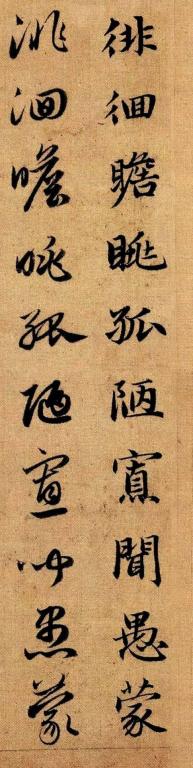 徘徊瞻眺孤陋寡聞愚蒙
徘徊瞻眺孤陋寡聞愚蒙